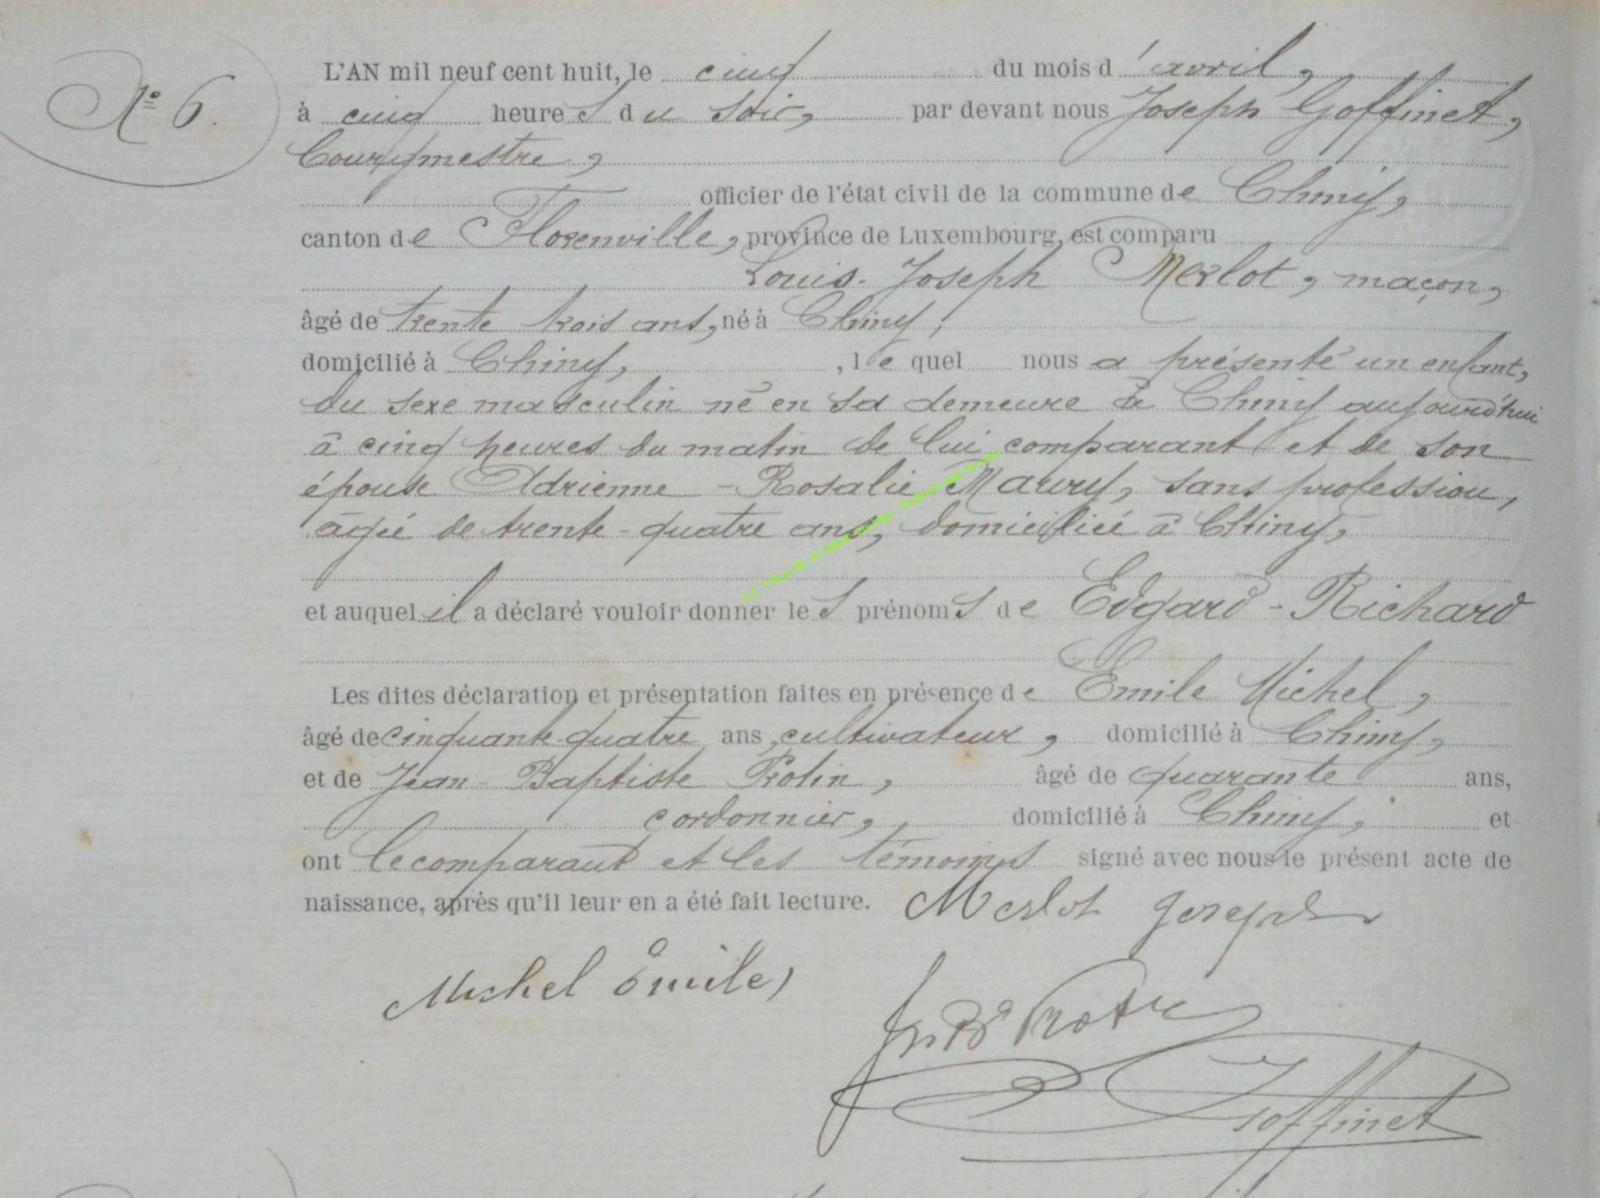 N° 6.
L'AN mil neuf cent huit, le cinq du mois d'avril,
à cinq heures du soir, par devant nous Joseph Goffinet,
Bourgmestre,
officier de l'état civil de la commune de Chiny,
canton de Florenville, province de Luxembourg, est comparu
Louis-Joseph Merlot, maçon,
âgé de trente trois ans, né à Chiny,
domicilié à Chiny, , lequel nous a présenté un enfant,
du sexe masculin né en sa demeure à Chiny aujourd'hui
à cinq heures du matin de lui comparant et de son
épouse Adrienne-Rosalie Maury, sans profession,
âgée de trente-quatre ans, domiciliée à Chiny,
et auquel il a déclaré vouloir donner les prénoms de Edgard-Richard
Les dites déclaration et présentation faites en présence de Emile Michel,
âgé de cinquante-quatre ans, cultivateur, domicilié à Chiny,
et de Jean-Baptiste Protin, âgé de quarante ans,
cordonnier, domicilié à Chiny, et
ont le comparant et les témoins signé avec nous le présent acte de
naissance, après qu'il leur en a été fait lecture. Merlot Joseph
Michel Emile
Goffinet